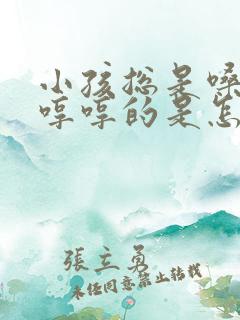 小孩总是嗓
哼哼的是怎
張立勇
未经同意禁止转载